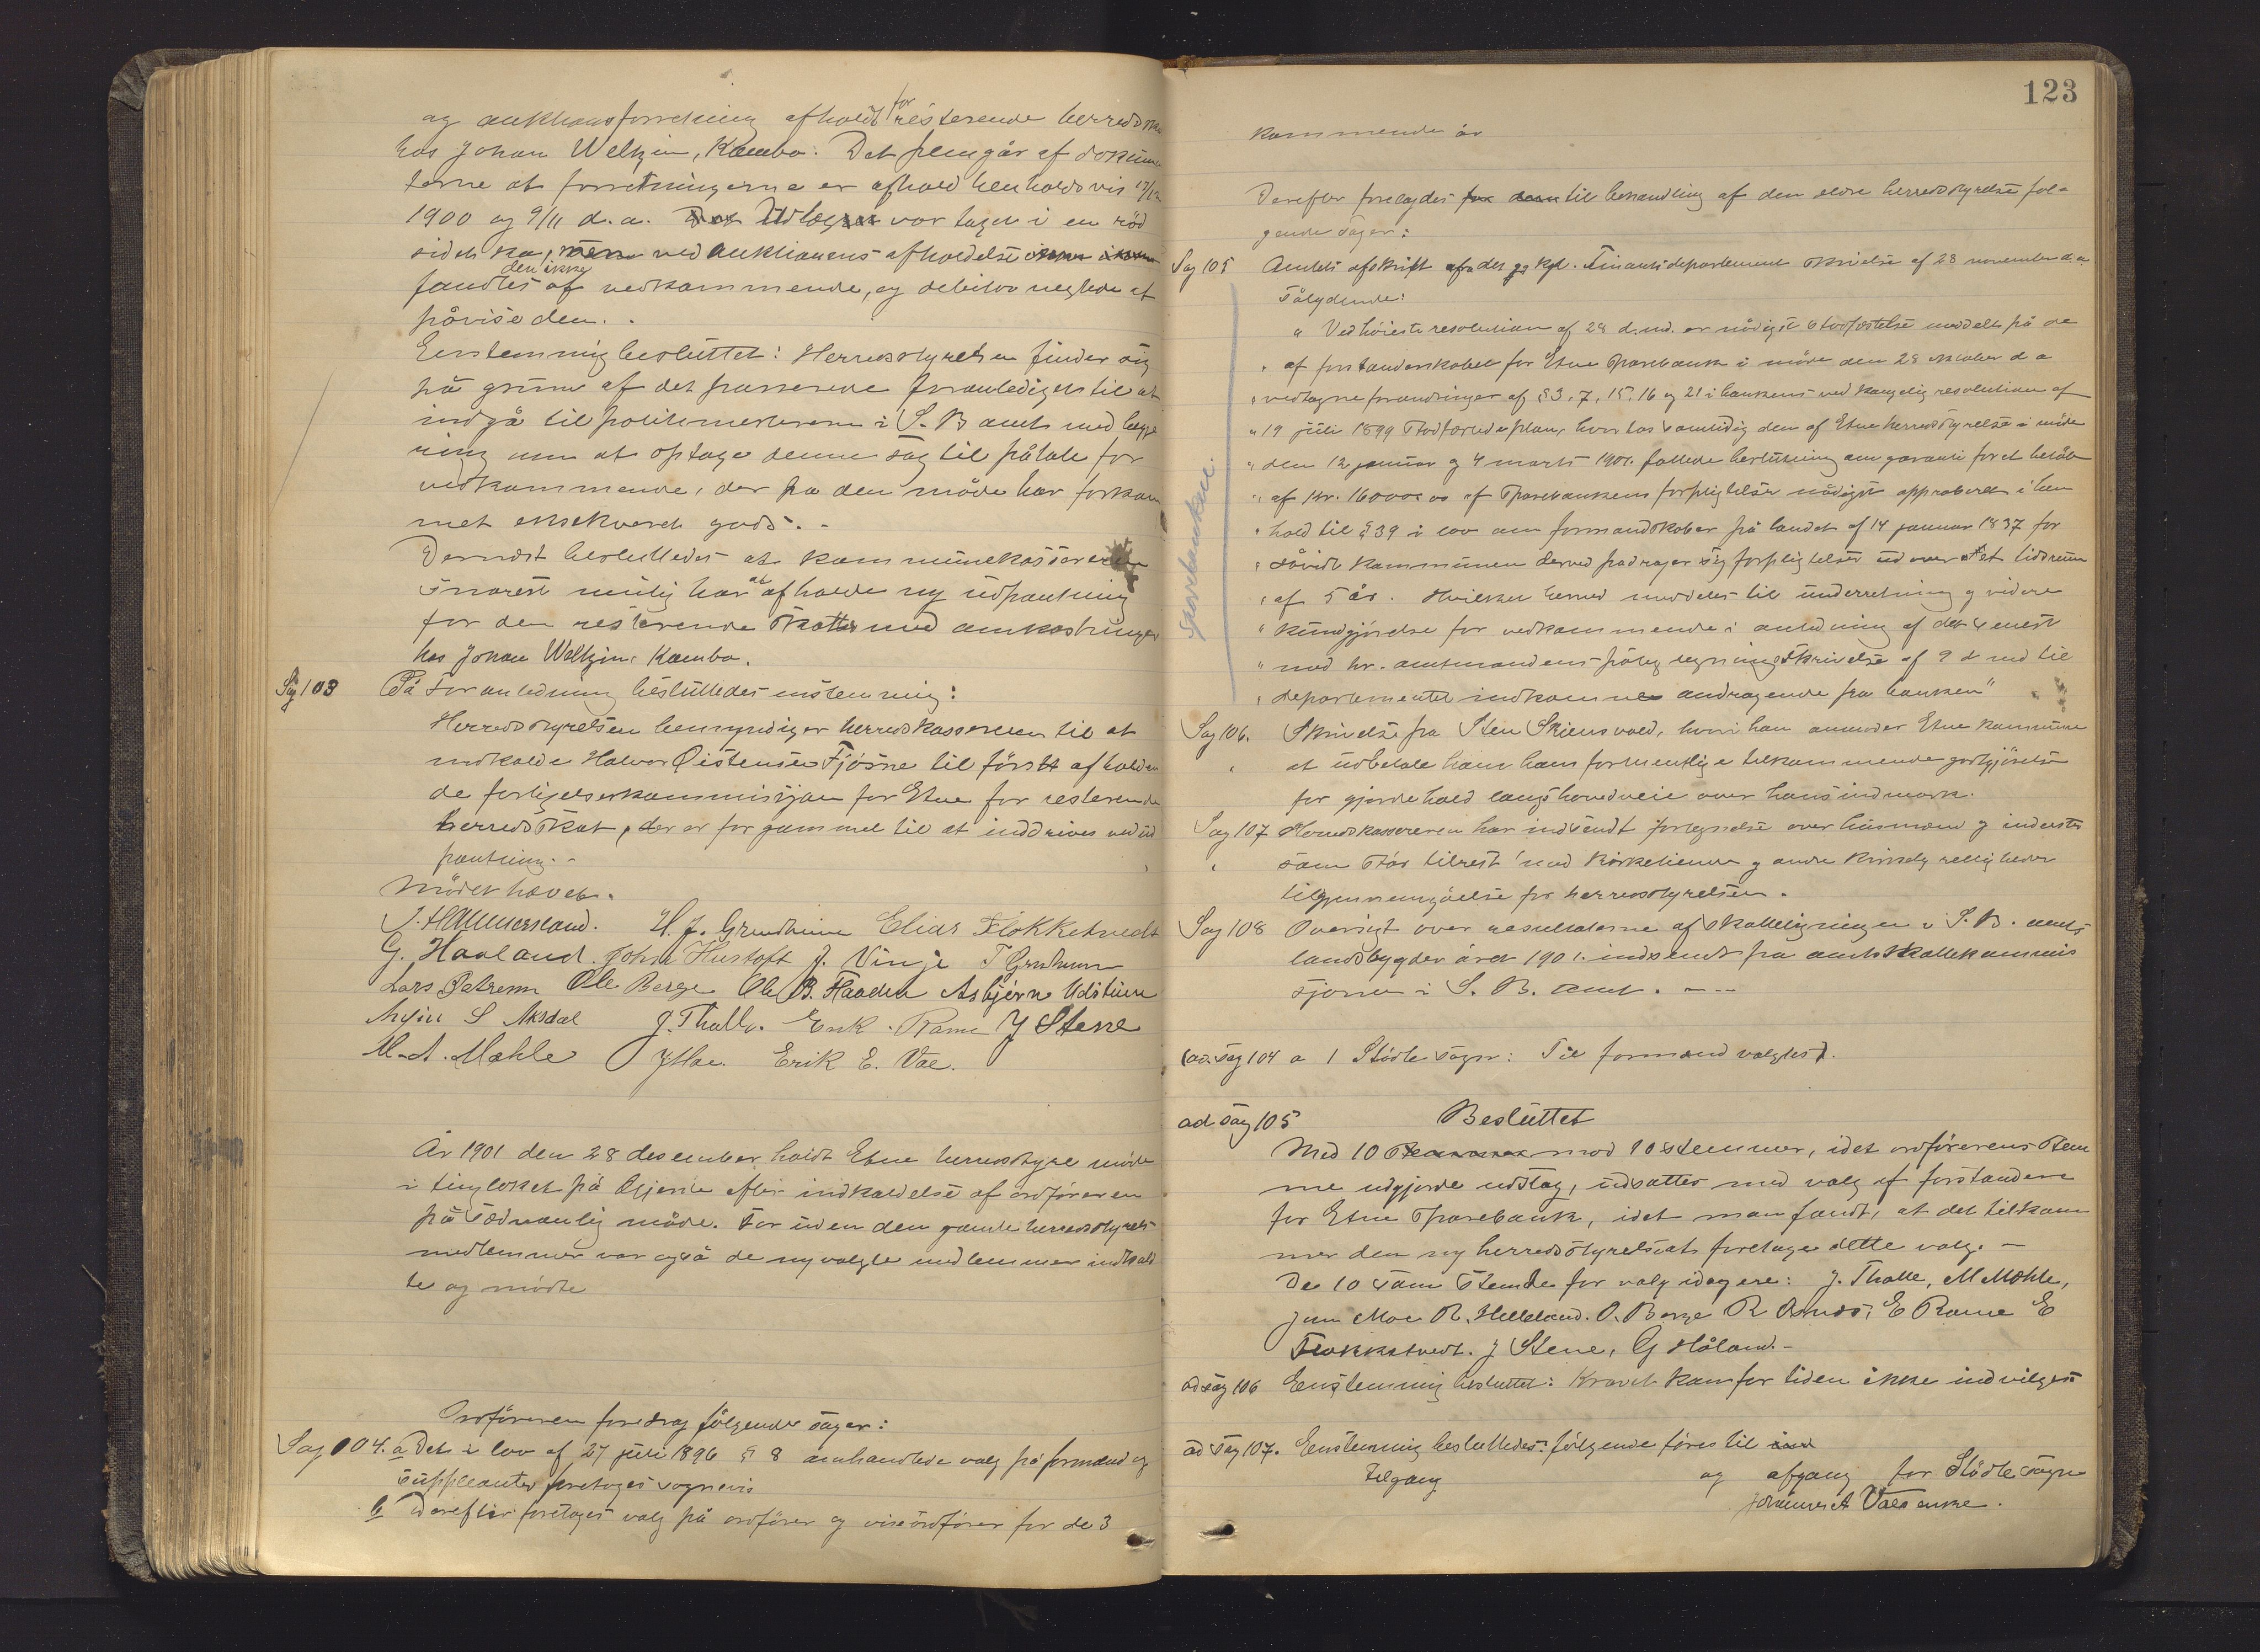 og auktionsforretning afholdt for resterende herredsska
hos Johan Weltzin, Kambo. Det fremgår af dokumen
terne at forretningerne er afhold henholdsvis 17/12
1900 og 9/11 d.a. Det Udlægget var tagen i en rød
sidet ko, men ved auktionens afholdelse
fandtes den ikke af vedkommende, og debitor neglede at
påvise den.
Eenstemmig besluttet: Herredsstyrelsen finder sig
på grunn af det passerede foranlediget til at
indgå til politimesteren i S. B amt med begjæ
ring om at optage denne sag til påtale for
vedkommende, der på den måde har forkom
met eksekveret gods.
Dernæst besluttedes at kommunekassereren
snarest mulig har at afholde ny udpantning
for den resterende skatter med omkostninger
hos Johan Weltzin, Kambo.
Sag 103 På foranledning besluttedes enstemmig:
Herredsstyrelsen bemyndiger herredskassereren til at
indkalde Halvor Øistensen Fjøsne til først afholden
de forligelseskommissjon for Etne for resterende
herredsskat, der er for gammel til at inddrives ved ud
pantning.
Mødet hævet.
J. Hammersland. H. J. Grindheim Elias Flokketvedt
G. Haaland. John Hustoft J. Vinje T Grindheim
Lars Østrem Ole Berge Ole B. Haaden Asbjørn Udstuen
S Aksdal J. Thalle. Erik Rame J Stene
M. A. Mæhle J Moe. Erik E. Vae.
År 1901 den 28 desember holdt Etne herredsstyre møde
i tingloket på Gjerde efter indkaldelse af ordføreren
på sædvanlig måde. For uden den gamle herredsstyrels
medlemmer var også de nyvalgte medlemmer indkald
te og mødte
Ordføreren foredrog følgende sager:
Sag 104. a Det i lov af 27 juli 1896 § 8 omhandlede valg på formænd og
suppleanter foretages sognevis
b Derefter foretages valg på ordfører og viseordfører for de 3
123
kommende år
Derefter forelagdes for dem til behandling af den eldre herredsstyrelse føl-
gende sager:
Sag 105 Amtets afskrift af det kgl. Finantsdepartement skrivelse af 28 november d.a.
sålydende:
" Ved høieste resolution af 28 d.md. er nådigst stadfæstelse meddelt på de
" af forstanderskabet for Etne Sparebank i møde den 28 oktober d a
" vedtagne forandringer af § 3, 7, 15, 16 og 21 i bankens ved kongelig resolution af
" 19 juli 1899 stadfæstede plan, hvorhos samtidig den af Etne herredsstyrelse i møde
" den 12 januar og 4 marts 1901. fattede beslutning om garanti for et beløb
" af kr. 16000,00 af Sparebankens forpligtelser nådigst approberet i hen
" hold til § 39 i lov om formandskaber på landet af 14 januar 1837 for
" såvidt kommunen derved pådrager sig forpligtelser ud over et tidsrum
" af 5 år. Hvilket herved meddeles til underretning og videre
" kundgjørelse for vedkommende i anledning af det senest
" med hr. amtmandens påtegningsskrivelse af 9 d md til
" departementet indkomne andragende fra banken"
Sparebanken.
Sag 106. Skrivelse fra Sten Skiensvold, hvori han anmoder Etne kommune
at udbetale ham hans formentlige tilkommende godtgjørelse
for gjerdehold langs hovedveie over hans indmark.
Sag 107 Herredskassereren har indsendt fortegnelse over husmænd og inderster
som står tilrest med kirketiende og andre kirkelig rettigheder
til gjennemgåelse for herredsstyrelsen.
Sag 108 Oversigt over resultaterne af skatteligningen i S. B. amts
landsbygder året 1901. indsendt fra amtsskattekommis
sjonen i S. B. amt.
(ad. sag 104 a 1 Stødle sogn: Til formænd valgtes).
ad sag 105 Besluttet
Med 10 stemmer mod 10 stemmer, idet ordførerens stem
me udgjorde udslag, udsattes med valg af forstandere
for Etne Sparebank, idet man fandt, at det tilkom
mer den ny herredsstyrelse at foretage dette valg. —
De 10 som stemte for valg idag ere: J. Thalle, M Mæhle,
Jens Moe R. Helleland. O. Berge R , E Rame E
Flokketvedt. J Stene, G Håland. -
ad sag 106 Eenstemmig besluttet: Kravet kan for tiden ikke indvilges
ad sag 107. Eenstemmig besluttedes: følgende føres til
tilgang og afgang for Stødle sogn
Vaes enke.